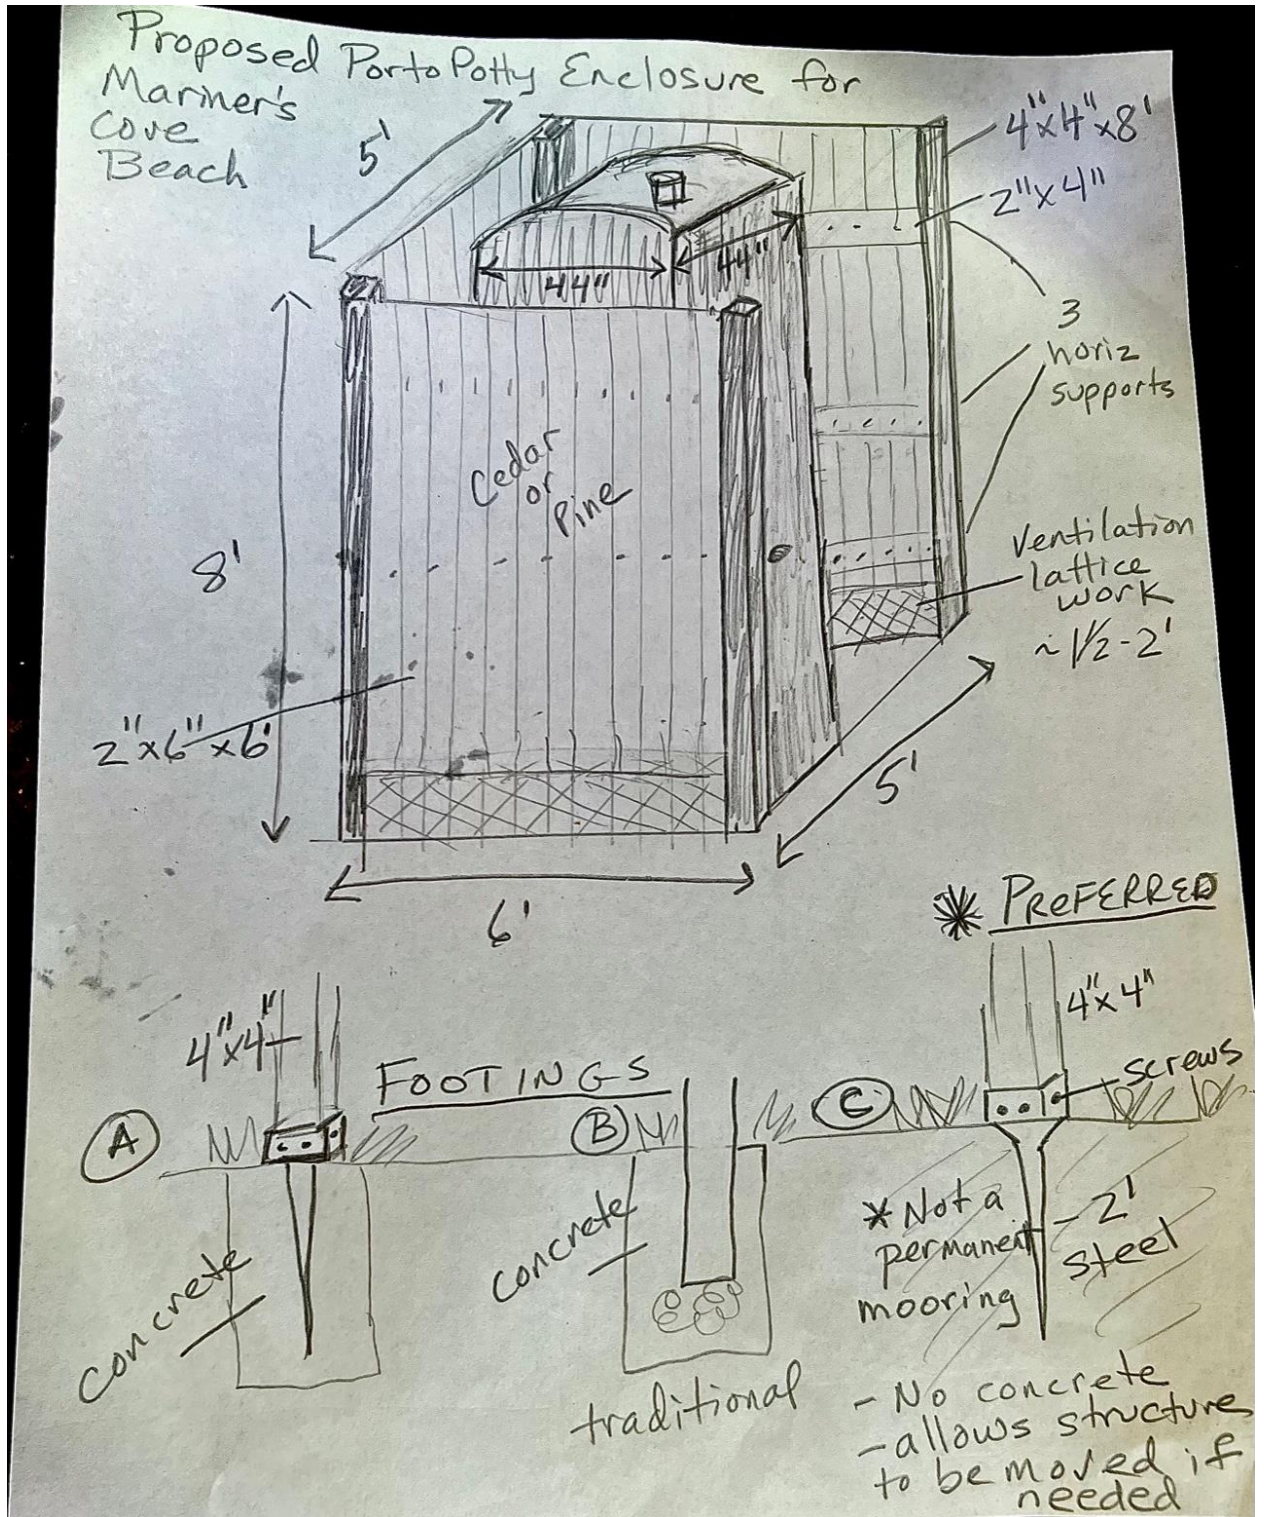 Proposed PortoPotty Enclosure for
Mariner's
Cove
Beach
5'
4"x4"x8'
2"x4"
44"
44"
3
horiz
supports
Cedar
or
Pine
8'
Ventilation
lattice
work
~1½-2'
2"x6"x6'
5'
6'
* PREFERRED
4"x4"
4"x4"
screws
FOOTINGS
A
B
C
concrete
concrete
* Not a
permanent
mooring
-2'
steel
traditional
- No concrete
- allows structure
to be moved if
needed